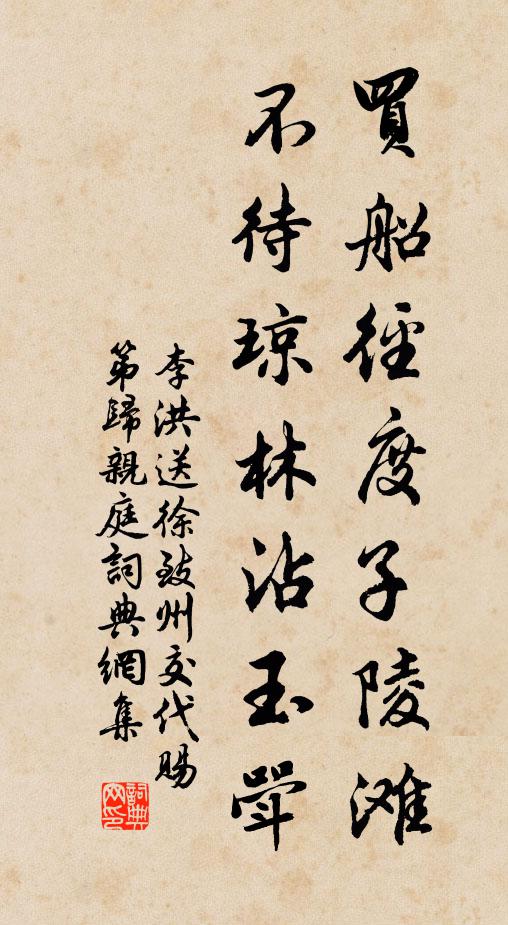 買船徑度子陵滩
不待琼林沾玉斝
李洪送徐致州交代賜
第歸親庭詞典網集
詞典
网印